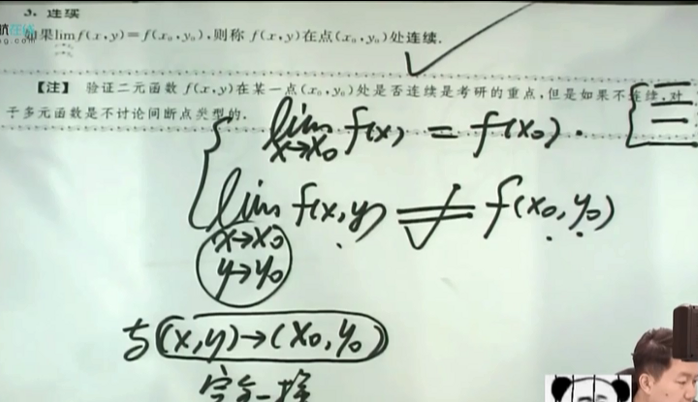 3. 连续
如果lim f(x,y)=f(x₀,y₀),则称 f(x,y)在点(x₀,y₀)处连续.
【注】 验证二元函数 f(x,y)在某一点(x₀,y₀)处是否连续是考研的重点,但是如果不连续,对
于多元函数是不讨论间断点类型的.
lim f(x) = f(x₀).
x→x₀
lim f(x,y) = f(x₀,y₀)
x→x₀
y→y₀
与 (x,y)→(x₀,y₀)
完全一样